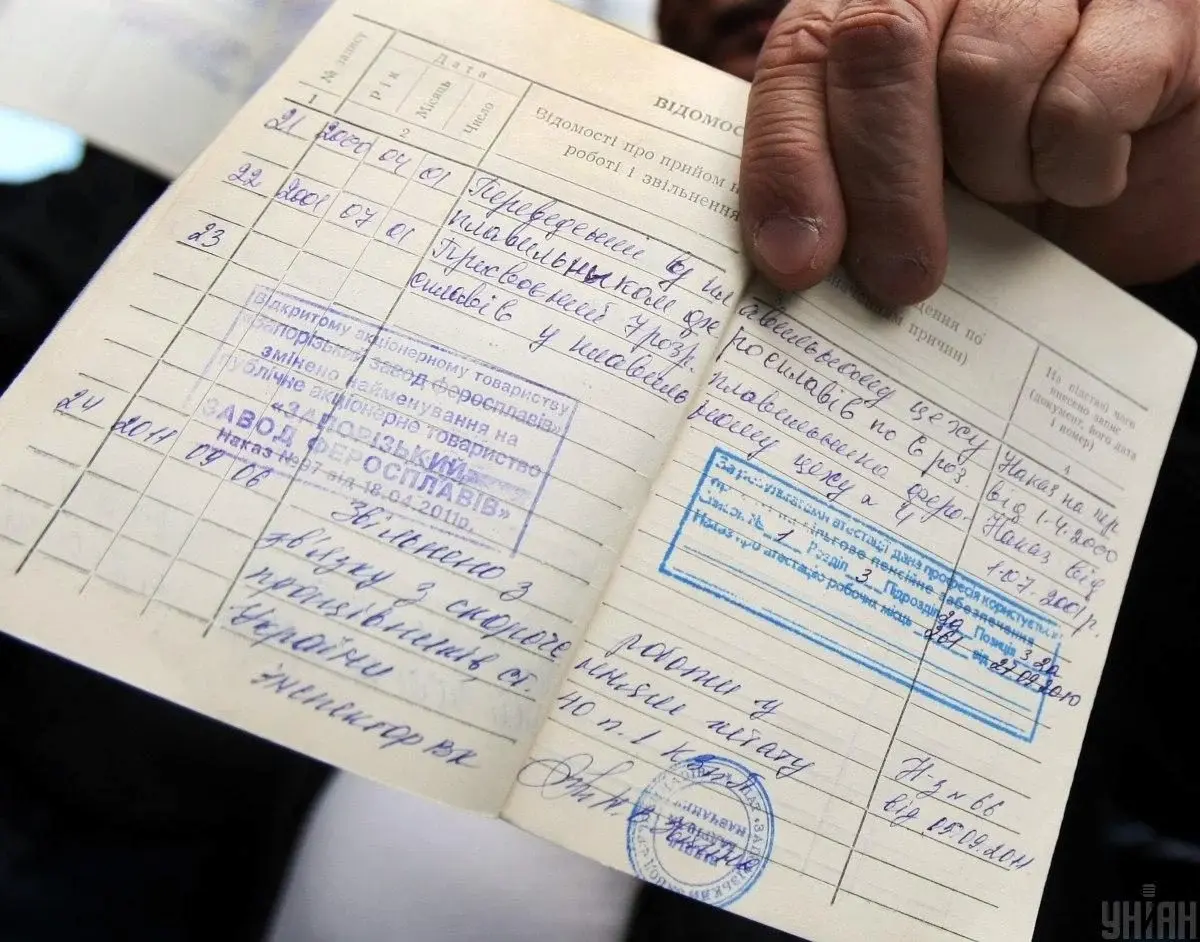 ВІДОМОС
№ запису
Дата
Рік
Місяць
Число
Відомості про прийом н
роботі і звільнення
ведення по
причин)
На підставі чого
внесено запис
(документ, його дата
і номер)
1
2
4
21 2000 04 01 Переведений у пл авильному цеху Наказ на пер
плавильником фе росплавів по 6 роз. від 1.4.2000
22 2001 07 01 Присвоєний 7 розр. плавильника феро- Наказ від
сплавів у плавиль ному цеху № 4 1.07.2001р.
23
Відкритому акціонерному товариству
«Запорізький завод феросплавів»
змінено найменування на
публічне акціонерне товариство
«ЗАПОРІЗЬКИЙ
ЗАВОД ФЕРОСПЛАВІВ»
Наказ №97 від 18.04.2011р.
За результатами атестації дана професія користується
правом на пільгове пенсійне забезпечення
Список № 1 Розділ 3 Підрозділ 3а Позиція
Наказ про атестацію робочих місць 261 від 27.09.2010
24 2011 09 06 Звільнено з роботи у Н-з № 66
звізку з скороче ненням штату від 05.09.2011
працівників, ст. 40 п.1 КЗпП
України
Інспектор ВК
УНІАН